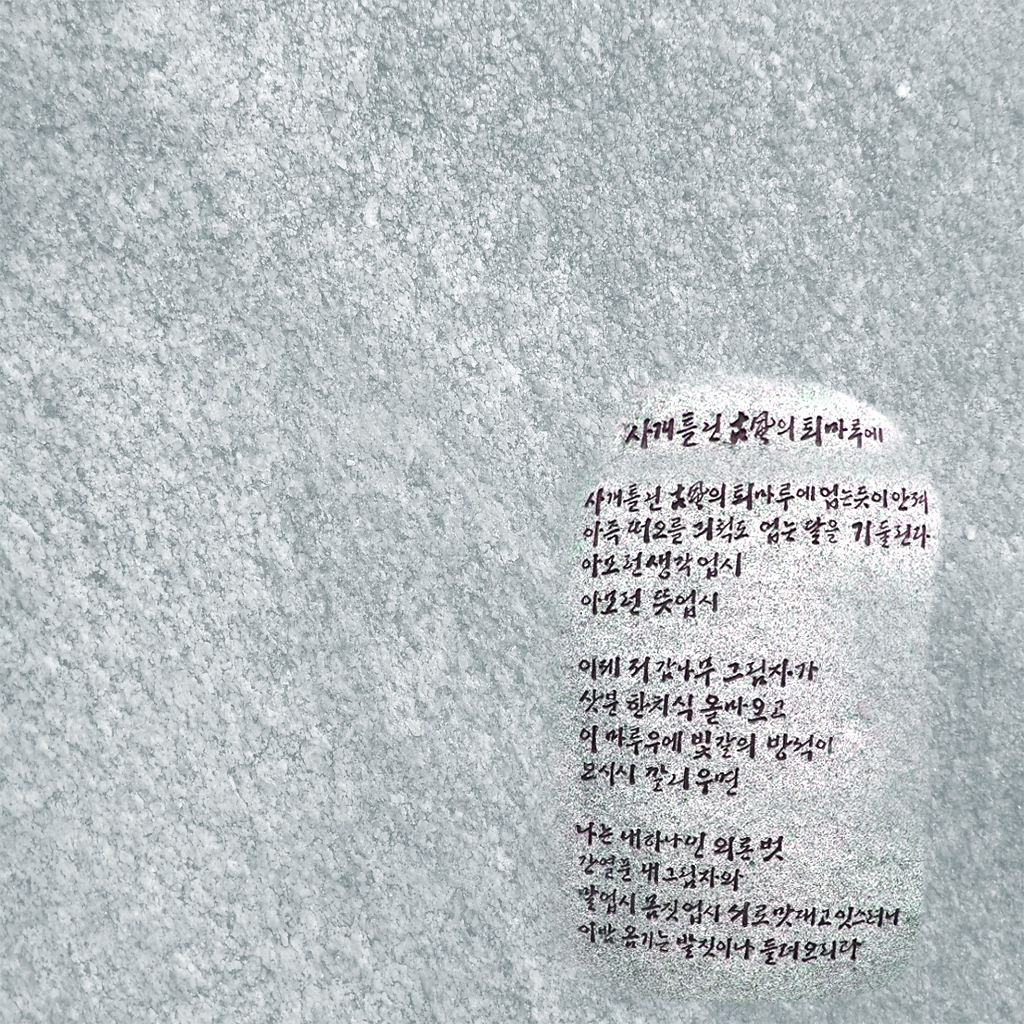 사개틀닌 古風의 퇴마루에
사개틀닌 古風의 퇴마루에 업는듯이안져
아즉 떠오를 긔척도 업는 달을 기둘린다
아모런 생각 업시
아모런 뜻업시
이제 저 감나무 그림자가
삿분 한치식 올마오고
이 마루우에 빛갈의 방석이
보시시 깔리우면
나는 내하나인 외론벗
간열푼 내그림자와
말업시 몸짓업시 서로맛대고 잇스려니
이밤 옴기는 발짓이나 들려오리라